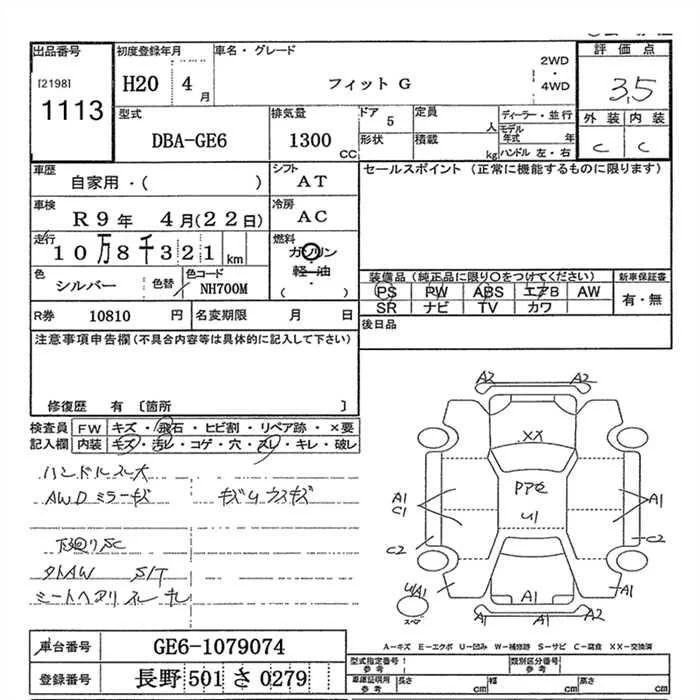 出品番号
[2198]
1113
初度登録年月
H20 4月
車名・グレード
フィット G
2WD
・
4WD
評価点
3.5
外装 内装
C C
型式
DBA-GE6
排気量
1300
CC
ドア 5
形状
定員 人
積載 kg
ディーラー・並行
モデル年式 年
ハンドル 左・右
車歴
自家用・( )
シフト
AT
セールスポイント (正常に機能するものに限ります)
車検
R9年 4月(22日)
冷房
AC
走行
10万8千321 km
燃料
ガソリン
・
軽・油
・
( )
色
シルバー
色替
色コード
NH700M
装備品(純正品に限り○をつけてください)
新車保証書
PS PW ABS エアB AW
有・無
SR ナビ TV カワ
R券 10810 円
名変期限 月 日
後日品
注意事項申告欄(不具合内容等は具体的に記入して下さい)
修復歴 有 〔箇所 〕
検査員記入欄
FW キズ・飛石・ヒビ割・リペア跡・×要
内装 キズ・汚レ・コゲ・穴・スレ・キレ・破レ
ハンドルスレ大
AWD ミラーキズ
下廻りSC
タトAW S/T
A2 A2
A2 C2
XX
PPC
U1
A1
C1
A1
C2
C2
U/A1
スペア
A1
A1
A1 A2
A-キズ E-エクボ U-凹み W-補修跡 S-サビ C-腐食 XX-交換済
車台番号
GE6-1079074
型式指定番号
類別区分番号
参考
参考
登録番号
長野 501 さ 0279
車庫証明用
参考
長さ cm
幅 cm
高さ cm